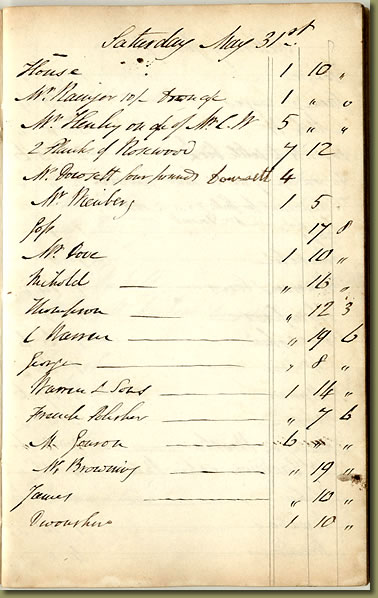 Saturday May 31st
House 1 10 "
Mr 1 " 0
Mr Henley on of Mr C. W 5 " "
2 Planks of Rosewood 7 12
Mr Dowsett four pounds Dowsett 4
Mr 1 5
Jos 17 8
Mr Dove 1 10 "
Nichold — " 16 "
Thompson — " 12 3
C Warren — " 19 6
George — " 8 "
Warren & Sons — 1 14 "
French Polisher — " 7 6
M — 6 " "
Mr Browning — " 19 "
James — " 10 "
Devonshire 1 10 "